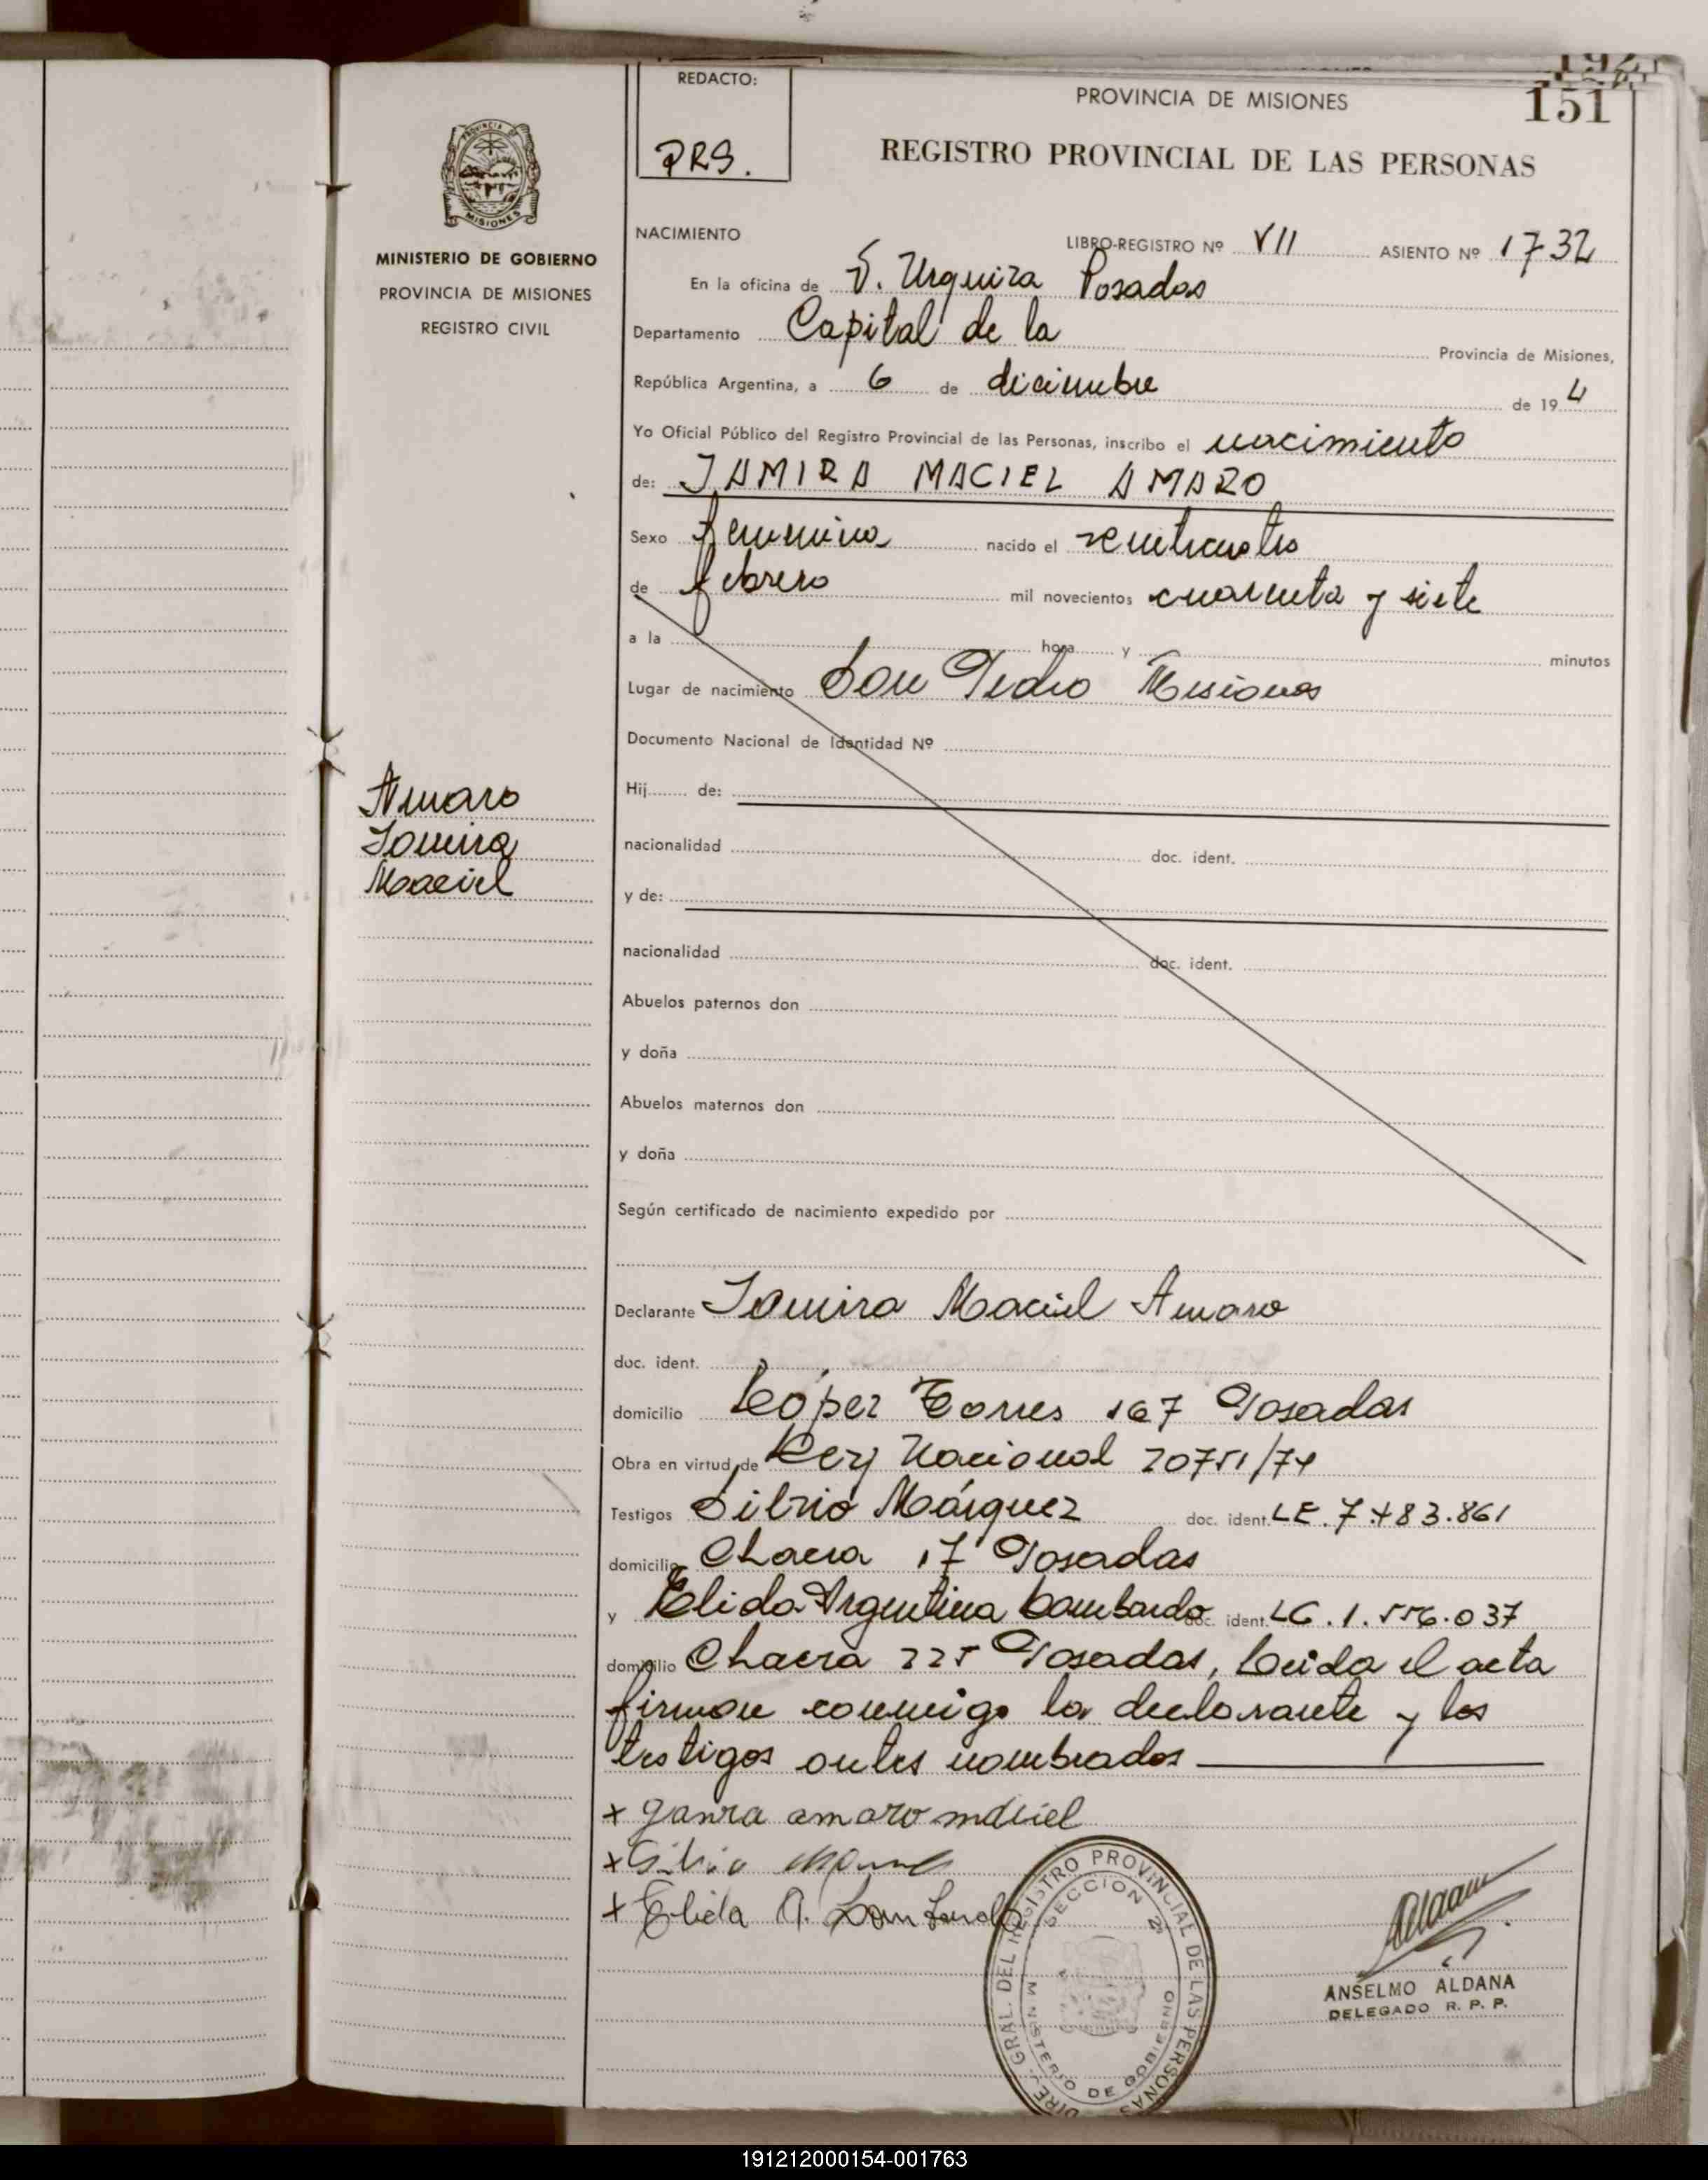 192
151
REDACTO:
PRS.
PROVINCIA DE MISIONES
REGISTRO PROVINCIAL DE LAS PERSONAS
PROVINCIA DE
MISIONES
MINISTERIO DE GOBIERNO
PROVINCIA DE MISIONES
REGISTRO CIVIL
NACIMIENTO LIBRO-REGISTRO Nº VII ASIENTO Nº 1732
En la oficina de V. Urquiza Posadas
Departamento Capital de la Provincia de Misiones,
República Argentina, a 6 de diciembre de 19 4
Yo Oficial Público del Registro Provincial de las Personas, inscribo el nacimiento
de: JAMIRA MACIEL AMARO
Sexo femenino nacido el veinticuatro
de febrero mil novecientos cuarenta y siete
a la hora y minutos
Lugar de nacimiento San Pedro Misiones
Documento Nacional de Identidad Nº
Hij de:
nacionalidad doc. ident.
y de:
nacionalidad doc. ident.
Abuelos paternos don
y doña
Abuelos maternos don
y doña
Según certificado de nacimiento expedido por
Amaro
Jamira
Maciel
Declarante Jamira Maciel Amaro
doc. ident.
domicilio López Torres 167 Posadas
Obra en virtud de Ley Nacional 20751/74
Testigos Silvio Márquez doc. ident. LE. 7.483.861
domicilio Chacra 17 Posadas
y Elida Argentina Lombardo doc. ident. LC. 1.556.037
domicilio Chacra 225 Posadas, Leida el acta
firman conmigo la declarante y los
testigos antes nombrados
+ Jamra amaro maciel
+ Silvio
+ Elida A. Lombardo
DIRE. GRAL. DEL REGISTRO PROVINCIAL DE LAS PERSONAS
SECCION 2ª
MINISTERIO DE GOBIERNO
Aldana
ANSELMO ALDANA
DELEGADO R. P. P.
191212000154-001763